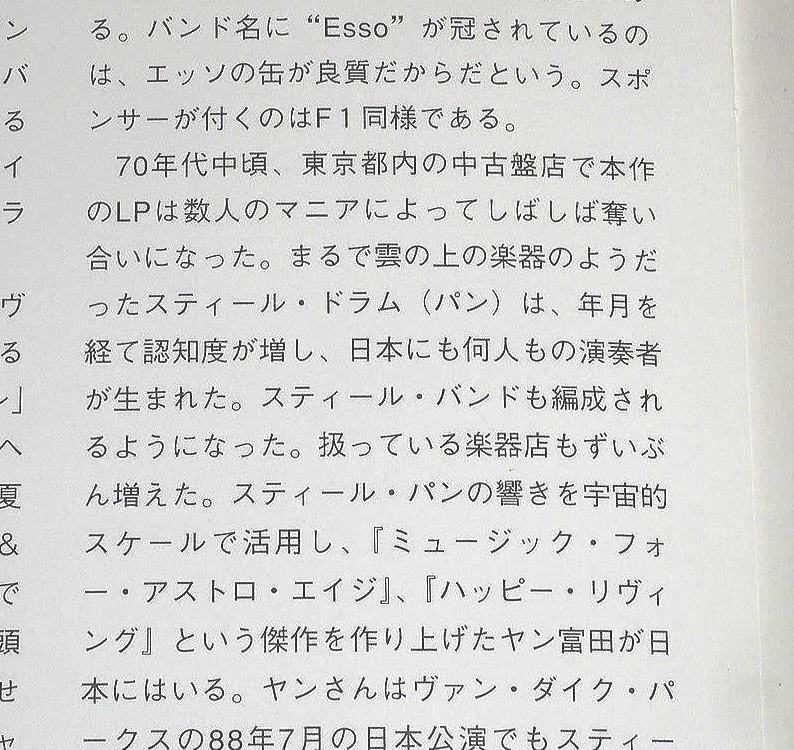 る。バンド名に“Esso”が冠されているの
は、エッソの缶が良質だからだという。スポ
ンサーが付くのはF1同様である。
70年代中頃、東京都内の中古盤店で本作
のLPは数人のマニアによってしばしば奪い
合いになった。まるで雲の上の楽器のようだ
ったスティール・ドラム（パン）は、年月を
経て認知度が増し、日本にも何人もの演奏者
が生まれた。スティール・バンドも編成され
るようになった。扱っている楽器店もずいぶ
ん増えた。スティール・パンの響きを宇宙的
スケールで活用し、『ミュージック・フォ
ー・アストロ・エイジ』、『ハッピー・リヴィ
ング』という傑作を作り上げたヤン富田が日
本にはいる。ヤンさんはヴァン・ダイク・パ
ークスの88年7月の日本公演でもスティー
ン
バ
る
イ
ラ
ヴ
る
」
へ
夏
&
で
頭
せ